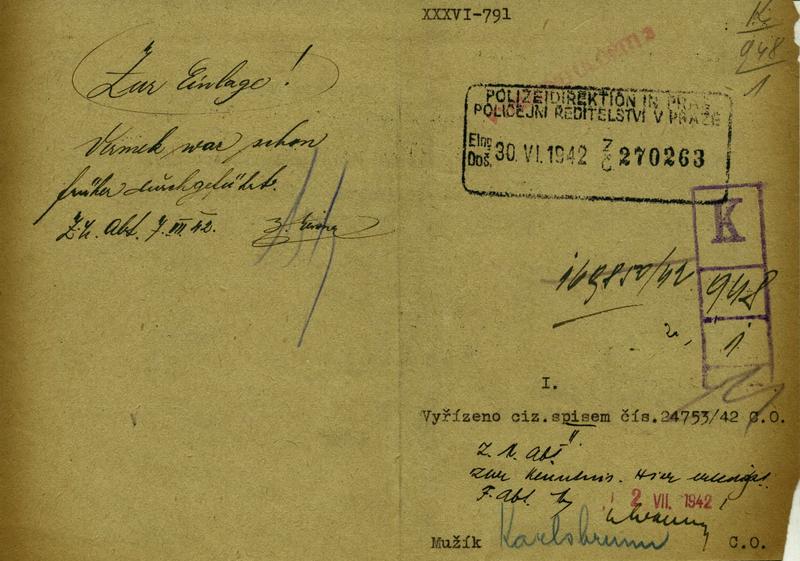 Zur Einlage!
Vermek war schon
früher durchgeführt.
Abt. 7. VII 42.
XXXVI-791
K
948
1
POLIZEIDIREKTION IN PRAG
POLICEJNÍ ŘEDITELSTVÍ V PRAZE
Eing.
Doš. 30. VI. 1942 Z Č 270263
K
948
1.
I.
Vyřízeno ciz.spisem čís.24753/42 C.O.
Abt
zur Kenntnis. Hier erledigt.
F. Abt.
2 VII. 1942
Mužík Karlsbrunn C.O.